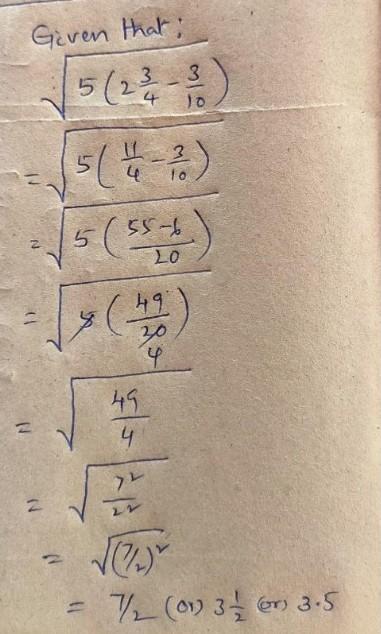 Given that:
√5(2 3/4 - 3/10)
= √5(11/4 - 3/10)
= √5(55-6/20)
= √5(49/20) 4
= √49/4
= √7²/2²
= √(7/2)²
= 7/2 (or) 3 1/2 (or) 3.5